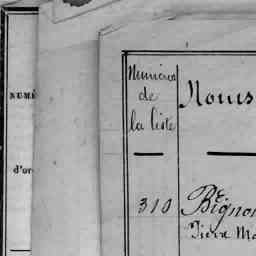 NUMÉ
d'or
Numéros
de
la liste
Noms
310
Bignon
Pierre Ma